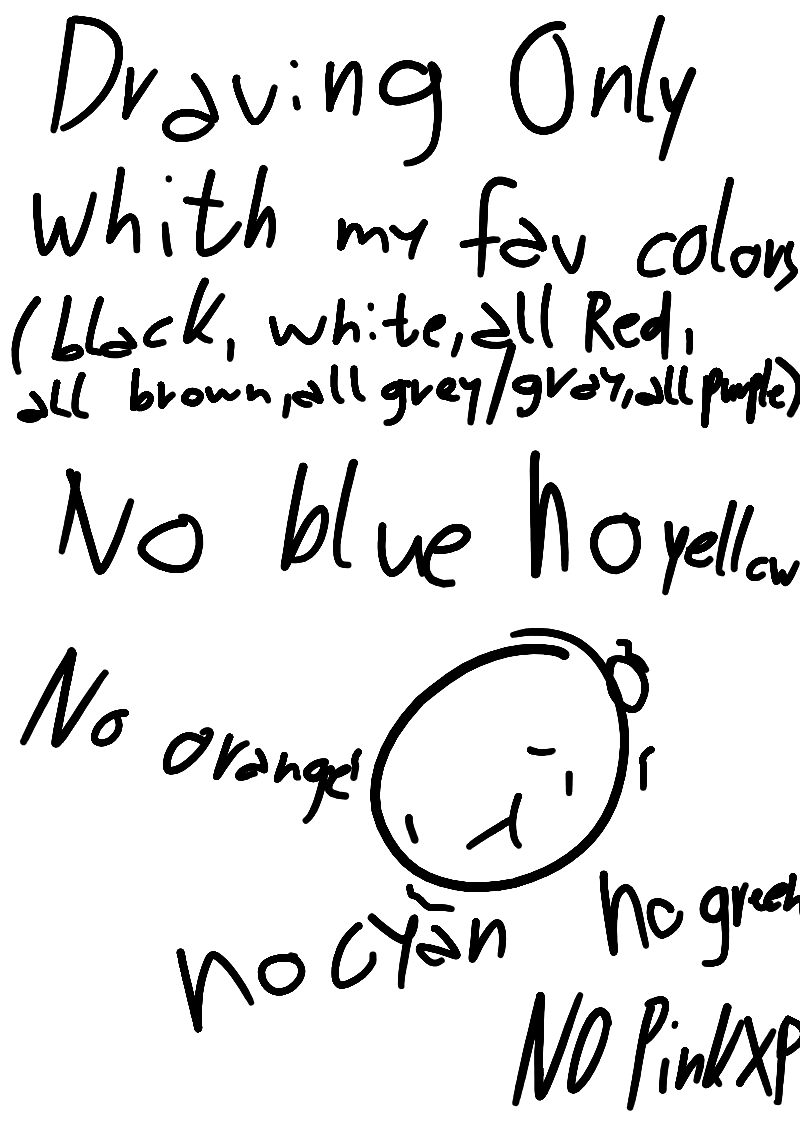 Draving Only
whith my fav colors
(black, white, all Red,
all brown, all grey/gray, all purple)
No blue no yellow
No orange
no green
no cyan
NO Pink XP